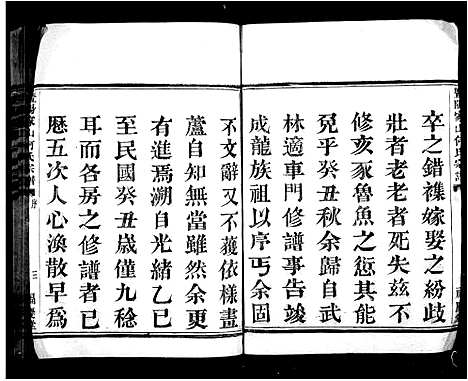 卒之錯襍嫁娶之紛歧
壯者老老者死失兹不
修亥豕魯魚之愆其能
免乎癸丑秋余歸自武
林適車門修譜事告竣
成龍族祖以序丐余固
不文辭又不獲依樣畫
蘆自知無當雖然余更
有進焉溯自光緒乙巳
至民國癸丑歲僅九稔
耳而各房之修譜者已
歷五次人心渙散早爲